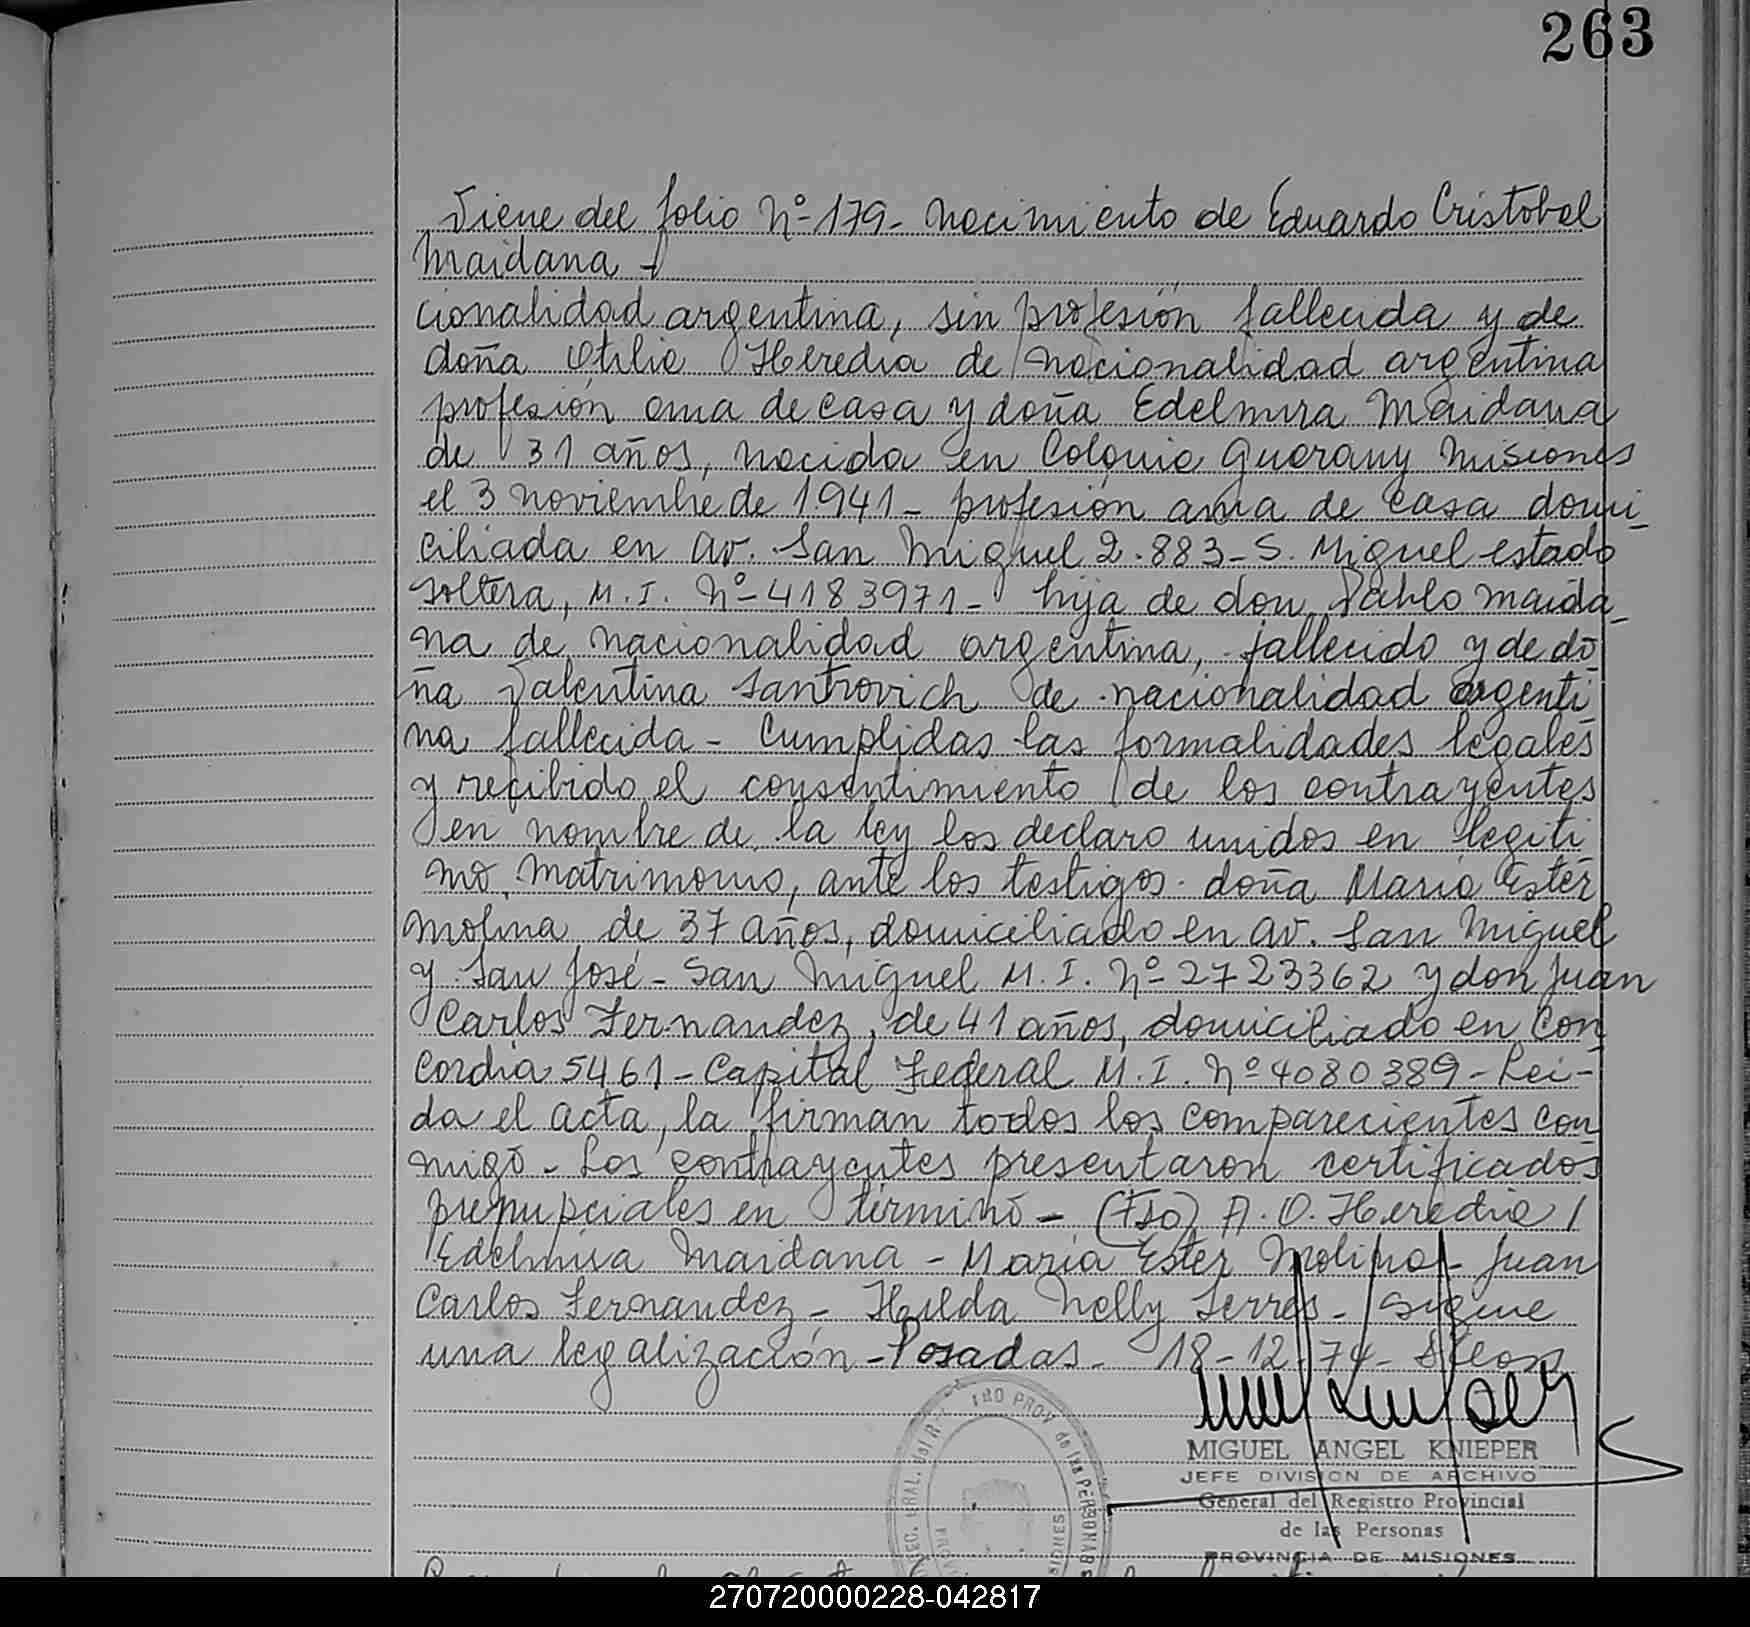 263
Viene del folio Nº-179- Nacimiento de Eduardo Cristobal
Maidana -
cionalidad argentina, sin profesión fallecida y de
doña Otilia Heredia de nacionalidad argentina
profesión ama de casa y doña Edelmira Maidana
de 31 años, nacida en Colonia Guarany Misiones
el 3 noviembre de 1941- profesión ama de casa domi-
ciliada en av. San Miguel 2.883- S. Miguel estado
soltera, M.I. Nº-4183971- hija de don Pablo Maida-
na de nacionalidad argentina, fallecido y de do-
ña Valentina Santrovich de nacionalidad argenti-
na fallecida - Cumplidas las formalidades legales
y recibido el consentimiento de los contrayentes
en nombre de la ley los declaro unidos en legiti-
mo matrimonio, ante los testigos doña Maria Ester
Molina de 37 años, domiciliado en av. San Miguel
y San José - San Miguel M.I. Nº-2723362 y don Juan
Carlos Fernandez, de 41 años, domiciliado en Con-
cordia 5461- Capital Federal M.I. Nº 4080389- Lei-
da el acta, la firman todos los comparecientes con-
migo - Los contrayentes presentaron certificados
prenupciales en término - (Fdo) A.O. Heredia /
Edelmira Maidana - Maria Ester Molina - Juan
Carlos Fernandez - Hilda Nelly Serres - Sigue
una legalización - Posadas - 18-12-74-
MIGUEL ANGEL KNIEPER
JEFE DIVISION DE ARCHIVO
General del Registro Provincial
de las Personas
PROVINCIA DE MISIONES
270720000228-042817